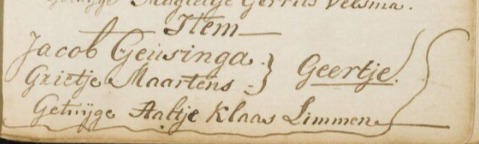 Getuijge Magteltje Gerrits Velsma.
Item
Jacob Geusinga.
Grietje Maartens. } Geertje.
Getuijge Aaltje Klaas Limmen